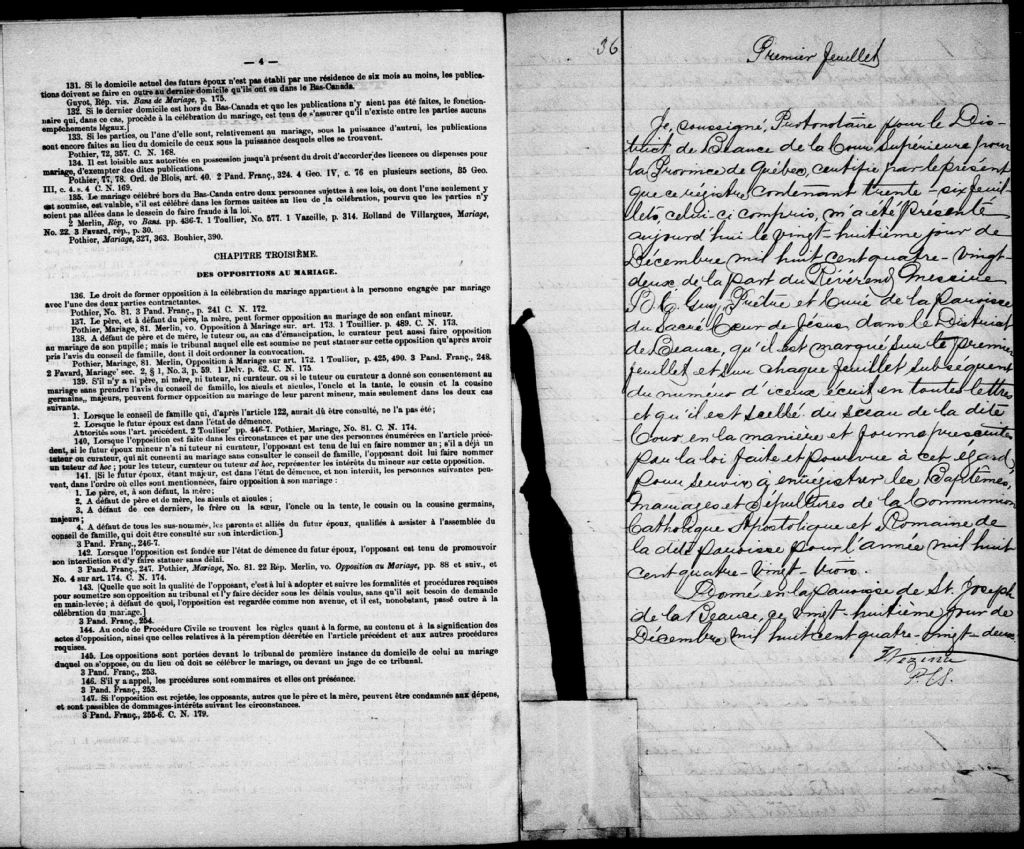 — 4 —
131. Si le domicile actuel des futurs époux n'est pas établi par une résidence de six mois au moins, les publica-
tions doivent se faire en outre au dernier domicile qu'ils ont eu dans le Bas-Canada.
Guyot, Rép. vis. Bans de Mariage, p. 175.
132. Si le dernier domicile est hors du Bas-Canada et que les publications n'y aient pas été faites, le fonction-
naire qui, dans ce cas, procède à la célébration du mariage, est tenu de s'assurer qu'il n'existe entre les parties aucuns
empêchements légaux.]
133. Si les parties, ou l'une d'elle sont, relativement au mariage, sous la puissance d'autrui, les publications
sont encore faites au lieu du domicile de ceux sous la puissance desquels elles se trouvent.
Pothier, 72, 357. C. N. 168.
134. Il est loisible aux autorités en possession jusqu'à présent du droit d'accorder des licences ou dispenses pour
mariage, d'exempter des dites publications.
Pothier, 77, 78. Ord. de Blois, art. 40. 2 Pand. Franç., 324. 4 Geo. IV, c. 76 en plusieurs sections, 35 Geo.
III, c. 4. s. 4 C. N. 169.
135. Le mariage célébré hors du Bas-Canda entre deux personnes sujettes à ses lois, ou dont l'une seulement y
est soumise, est valable, s'il est célébré dans les formes usitées au lieu de la célébration, pourvu que les parties n'y
soient pas allées dans le dessein de faire fraude à la loi.
2 Merlin, Rép, vo Bans. pp. 436-7. 1 Toullier, No. 577. 1 Vazeille, p. 314. Rolland de Villargues, Mariage,
No. 22. 3 Favard, rép., p. 30.
Pothier, Mariage, 327, 363. Bouhier, 390.
CHAPITRE TROISIÈME.
DES OPPOSITIONS AU MARIAGE.
136. Le droit de former opposition à la célébration du mariage appartient à la personne engagée par mariage
avec l'une des deux parties contractantes.
Pothier, No. 81. 3 Pand. Franç., p. 241 C. N. 172.
137. Le père, et à défaut du père, la mère, peut former opposition au mariage de son enfant mineur.
Pothier, Mariage, 81. Merlin, vo. Opposition à Mariage sur. art. 173. 1 Toullier. p. 489. C. N. 173.
138. A défaut de père et de mère, le tuteur et, au cas d'émancipation, le curateur peut aussi faire opposition
au mariage de son pupille; mais le tribunal auquel elle est soumise ne peut statuer sur cette opposition qu'après avoir
pris l'avis du conseil de famille, dont il doit ordonner la convocation.
Pothier, Mariage, 81. Merlin, Opposition à Mariage sur art. 172. 1 Toullier, p. 425, 490. 3 Pand. Franç., 248.
2 Favard, Mariage' sec. 2, § 1, No. 3, p. 59. 1 Delv. p. 62. C. N. 175.
139. S'il n'y a ni père, ni mère, ni tuteur, ni curateur. ou si le tuteur ou curateur a donné son consentement au
mariage sans prendre l'avis du conseil de famille, les aïeuls et aïeules, l'oncle et la tante, le cousin et la cousine
germains,, majeurs, peuvent former opposition au mariage de leur parent mineur, mais seulement dans les deux cas
suivants.
1. Lorsque le conseil de famille qui, d'après l'article 122, aurait dû être consulté, ne l'a pas été;
2. Lorsque le futur époux est dans l'état de démence.
Autorités sous l'art. précédent. 2 Toullier' pp. 446-7. Pothier, Mariage, No. 81. C. N. 174.
140, Lorsque l'opposition est faite dans les circonstances et par une des personnes énumérées en l'article précé-
dent, si le futur époux mineur n'a ni tuteur ni curateur, l'opposant est tenu de lui en faire nommer un; s'il a déjà un
tuteur ou curateur, qui ait consenti au mariage sans consulter le conseil de famille, l'opposant doit lui faire nommer
un tuteur ad hoc; pour les tuteur, curateur ou tuteur ad hoc, représenter les intérêts du mineur sur cette opposition.
141. [Si le futur époux, étant majeur, est dans l'état de démence, et non interdit, les personnes suivantes peu-
vent, dans l'ordre où elles sont mentionnées, faire opposition à son mariage:
1. Le père, et, à son défaut, la mère;
2. A défaut de père et de mère, les aïeuls et aïeules;
3. A défaut de ces derniers, le frère ou la sœur, l'oncle ou la tente, le cousin ou la cousine germains,
majeurs;
4. A défaut de tous les sus-nommés, les parents et alliés du futur époux, qualifiés à assister à l'assemblée du
conseil de famille, qui doit être consulté sur son interdiction.]
3 Pand. Franç., 246-7.
142. Lorsque l'opposition est fondée sur l'état de démence du futur époux, l'opposant est tenu de promouvoir
son interdiction et d'y faire statuer sans délai.
3 Pand. Franç., 247. Pothier, Mariage, No. 81. 22 Rép. Merlin, vo. Opposition au Mariage, pp. 88 et suiv., et
No. 4 sur art. 174. C. N. 174.
143. [Quelle que soit la qualité de l'opposant, c'est à lui à adopter et suivre les formalités et procédures requises
pour soumettre son opposition au tribunal et l'y faire décider sous les délais voulus, sans qu'il soit besoin de demande
en main-levée; à défaut de quoi, l'opposition est regardée comme non avenue, et il est, nonobstant, passé outre à la
célébration du mariage.]
3 Pand. Franç., 254.
144. Au code de Procédure Civile se trouvent les règles quant à la forme, au contenu et à la signification des
actes d'opposition, ainsi que celles relatives à la péremption décrétée en l'article précédent et aux autres procédures
requises.
145. Les oppositions sont portées devant le tribunal de première instance du domicile de celui au mariage
duquel on s'oppose, ou du lieu où doit se célébrer le mariage, ou devant un juge de ce tribunal.
3 Pand. Franç., 253.
146. S'il y a appel, les procédures sont sommaires et elles ont préséance.
3 Pand. Franç., 253.
147. Si l'opposition est rejetée, les opposants, autres que le père et la mère, peuvent être condamnés aux dépens,
et sont passibles de dommages-intérêts suivant les circonstances.
3 Pand. Franç., 255-6. C. N. 179.
36
Premier feuillet
Je, soussigné, Protonotaire pour le Dis-
trict de Beauce de la Cour Supérieure pour
la Province de Québec, certifie par le présent
que ce régistre, contenant trente-six feuil-
lets, celui-ci compris, m'a été présenté
aujourd'hui le vingt-huitième jour de
Décembre mil huit cent quatre-vingt-
deux de la part du Révérend Messire
Guy, Prêtre et Curé de la Paroisse
du Sacré Cœur de Jésus dans le District
de Beauce, qu'il est marqué sur le premier
feuillet et sur chaque feuillet subséquent
du numéro d'iceux écrit en toutes lettres
et qu'il est scellé du sceau de la dite
Cour en la manière et forme prescrites
par la loi faite et pourvue à cet égard,
pour servir à enrégistrer les Baptêmes,
Mariages et Sépultures de la Communion
Catholique Apostolique et Romaine de
la dite paroisse pour l'année mil huit
cent quatre-vingt-trois.
Donné en la Paroisse de St. Joseph
de la Beauce, ce vingt-huitième jour de
Décembre mil huit cent quatre-vingt-deux.
Vezina
P.C.S.